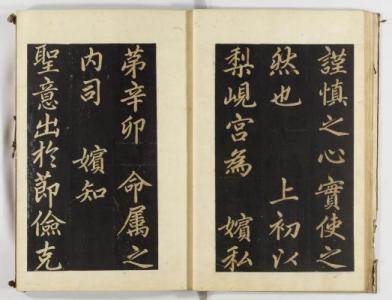 謹慎之心實使之
然也 上初以
梨峴宮為 嬪私
第辛卯 命属之
內司 嬪知
聖意出於節儉克